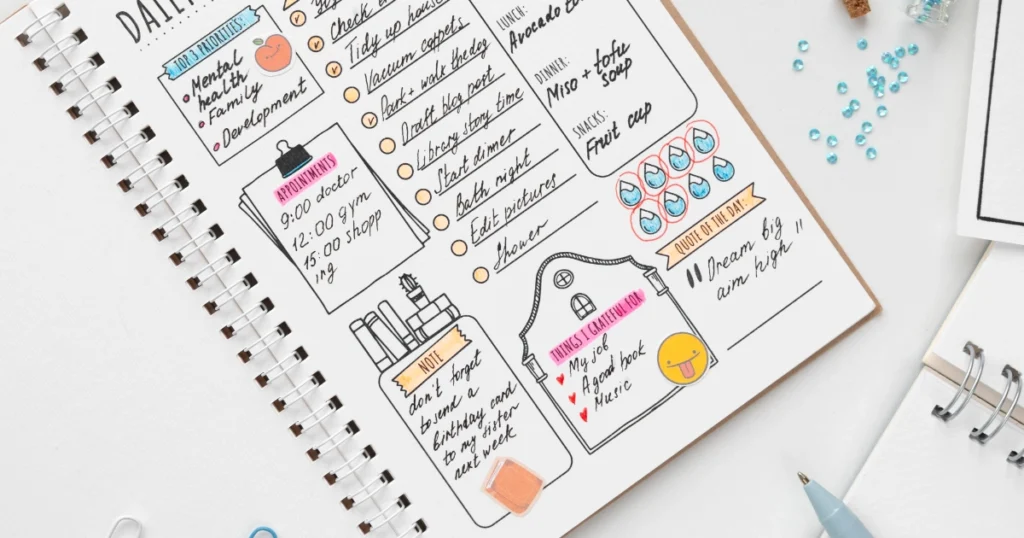 DAILY
TOP 3 PRIORITIES:
Mental
health
Family
Development
APPOINTMENTS
9:00 doctor
12:00 gym
15:00 shopp
ing
Tidy up house
Vacuum carpets
Park + walk the dog
Draft blog post
Library story time
Start dinner
Bath night
Edit pictures
Shower
LUNCH:
Avocado
DINNER:
Miso + tofu
soup
SNACKS:
Fruit cup
QUOTE OF THE DAY:
"Dream big
aim high"
NOTE
don't forget
to send a
birthday card
to my sister
next week
THINGS I GRATEFUL FOR
My job
A good book
Music